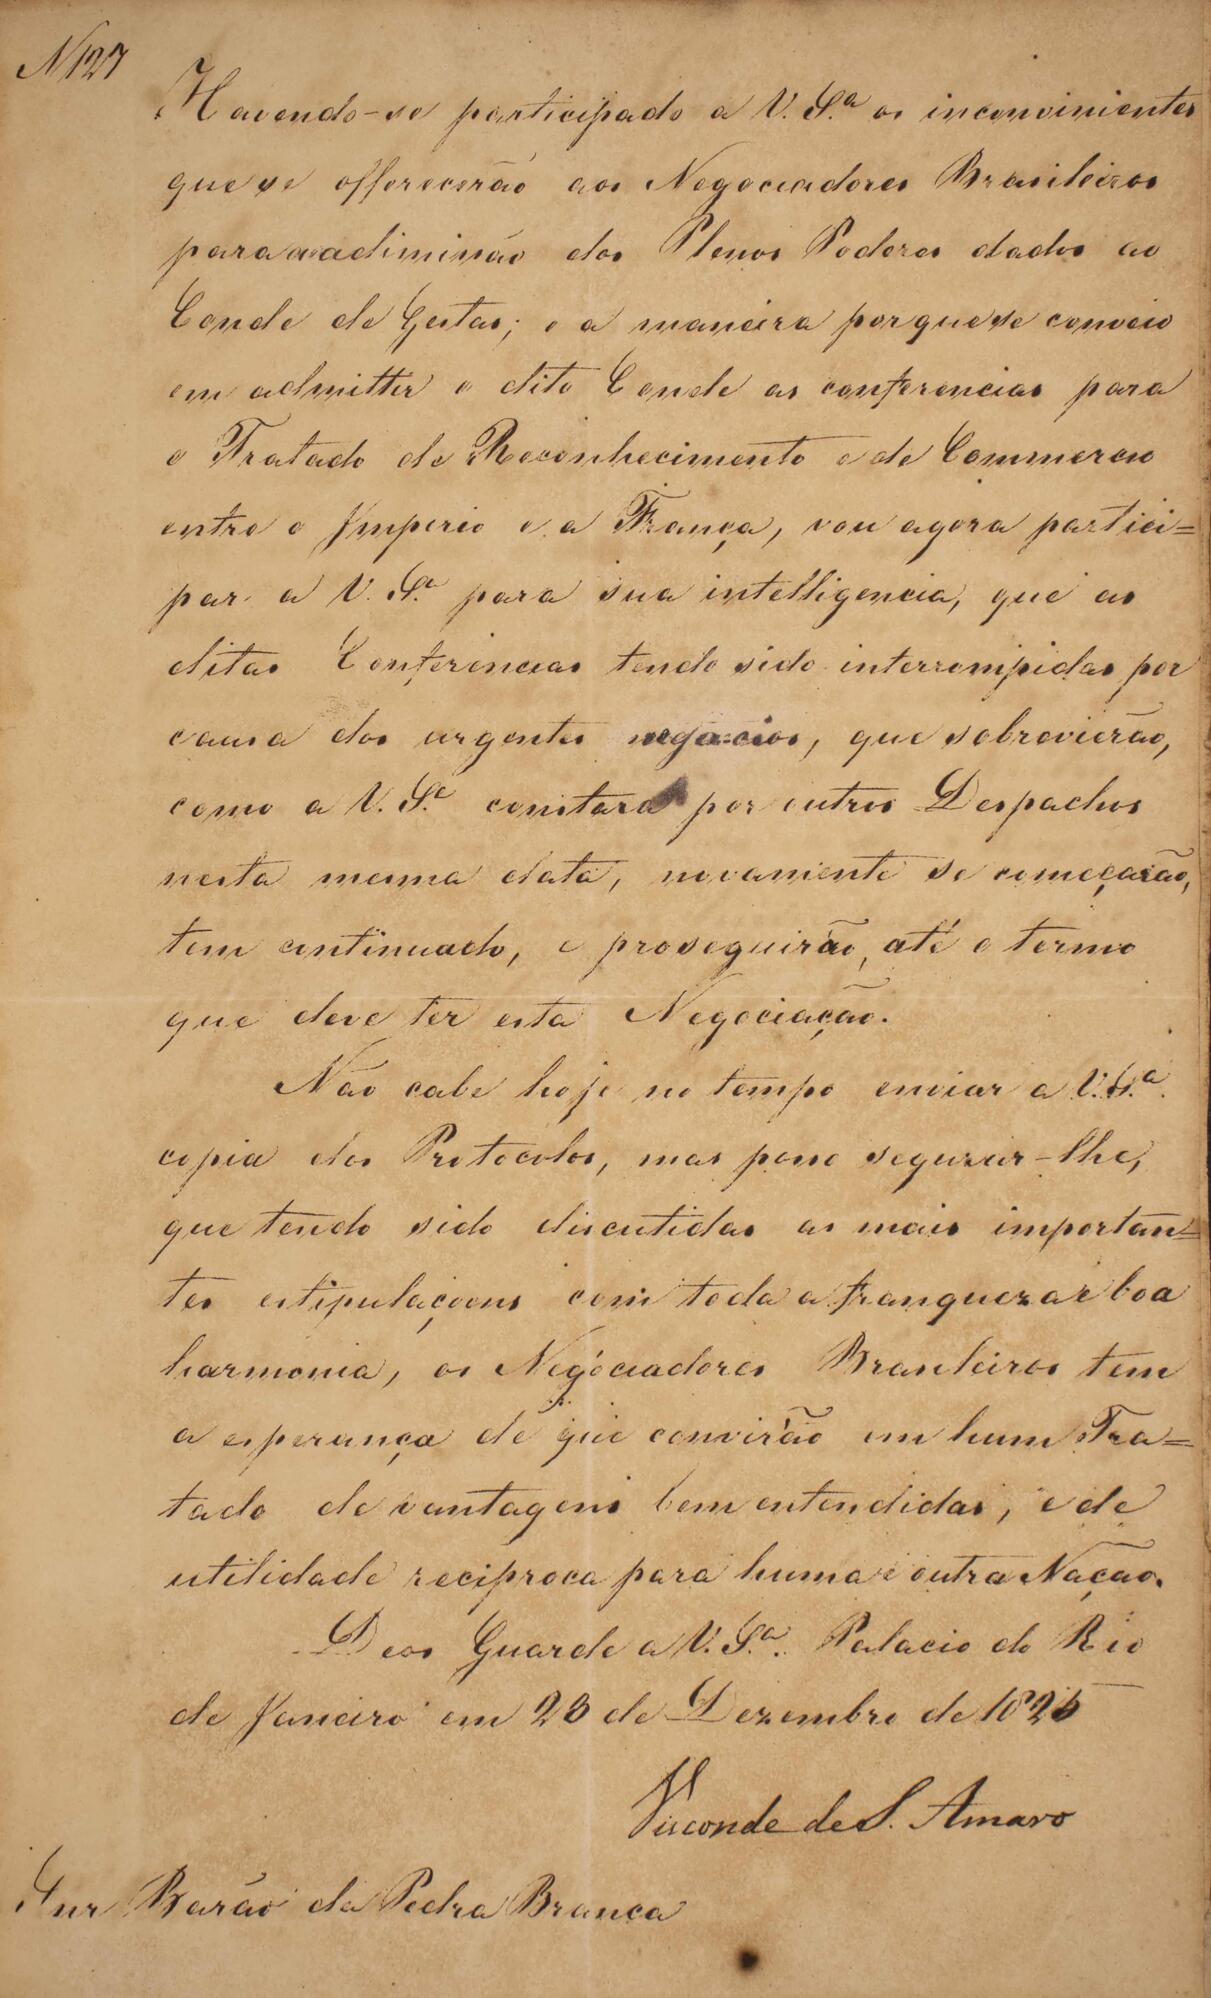 N 127
Havendo-se participado a V. S.ª os inconvinientes
que se offerecerão aos Negociadores Brasileiros
para a adimissão dos Plenos Poderes dados ao
Conde de Gestas; e a maneira porque se conveio
em admitter o dito Conde as conferencias para
o Tratado de Reconhecimento e de Commercio
entre o Imperio e a França, vou agora partici=
par a V. S.ª para sua intelligencia, que as
ditas Conferencias tendo sido interrompidas por
causa dos urgentes negocios, que sobrevierão,
como a V. S.ª constará por outros Despachos
nesta mesma data, novamente se começarão,
tem continuado, e proseguirão, até o termo
que deve ter esta Negociação.
Não cabe hoje no tempo enviar a V. S.ª
copia dos Protocolos, mas posso segurar-lhe,
que tendo sido discutidas as mais importan=
tes estipulaçoens com toda a franqueza e boa
harmonia, os Negociadores Brasileiros tem
a esperança de que convirão em hum Tra=
tado de vantagens bem entendidas, e de
utilidade reciproca para huma e outra Nação.
Deos Guarde a V. S.ª. Palacio do Rio
de Janeiro em 23 de Dezembro de 1825
Visconde de S. Amaro
Snr Barão da Pedra Branca